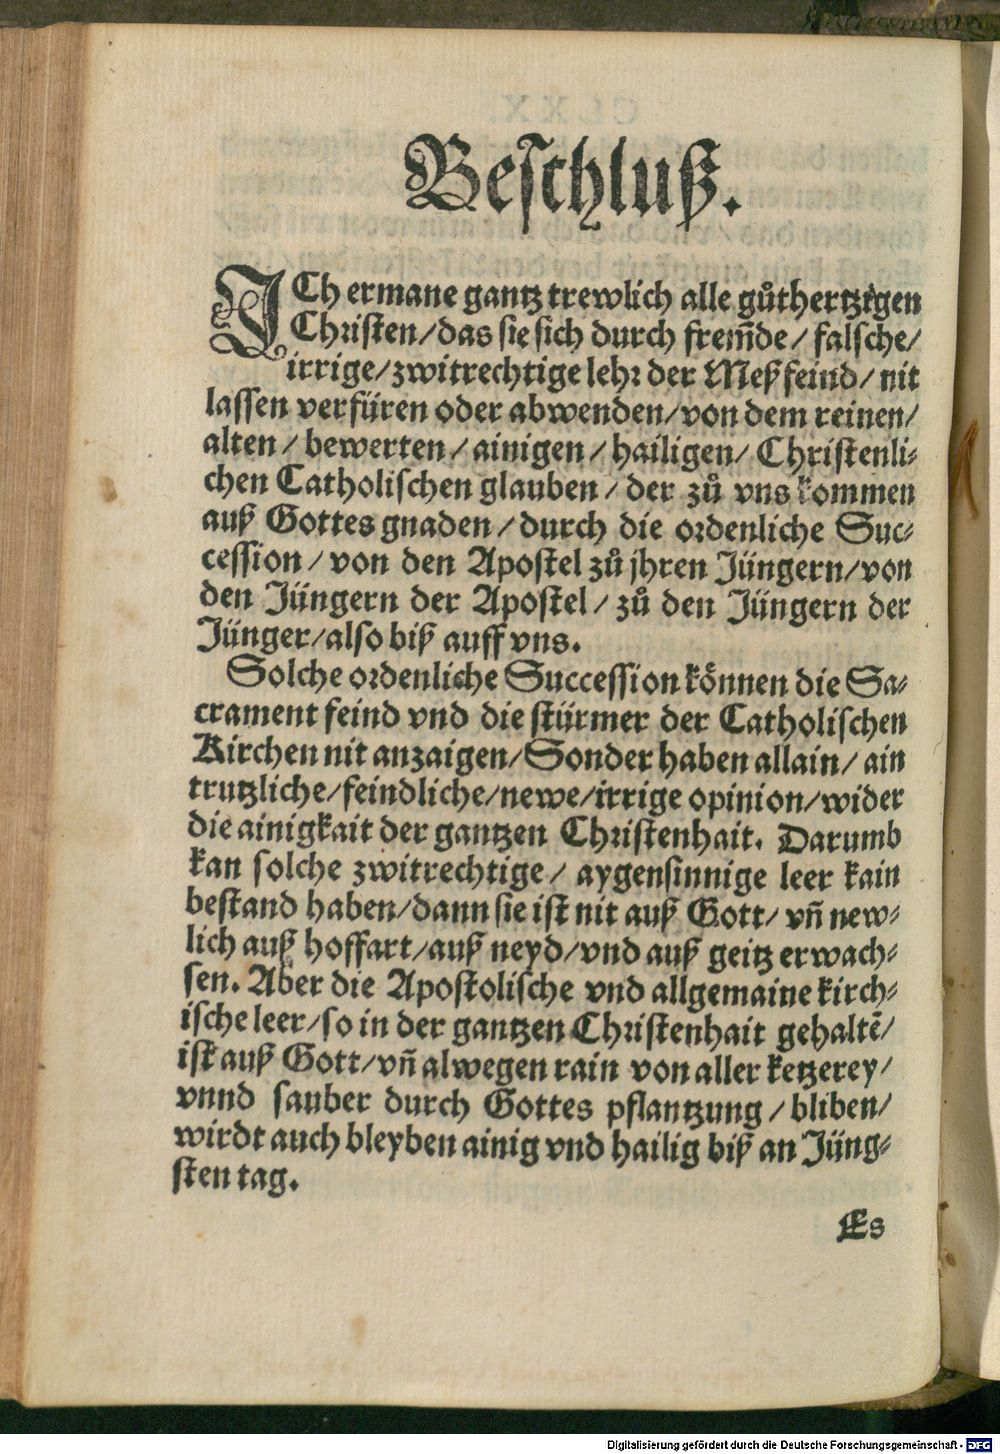 Beſchluß.
ICh ermane gantz trewlich alle gůthertzigen
Chriſten/das ſie ſich durch frem̃de/ falſche/
irrige/zwitrechtige lehr der Meßfeind/ nit
laſſen verfüren oder abwenden/von dem reinen/
alten/ bewerten/ainigen/hailigen/ Chriſtenli⸗
chen Catholiſchen glauben/ der zů vns kommen
auß Gottes gnaden/durch die ordenliche Suc⸗
ceſſion/ von den Apoſtel zů jhren Jüngern/von
den Jüngern der Apoſtel/ zů den Jüngern der
Jünger/alſo biß auff vns.
Solche ordenliche Succeſſion können die Sa⸗
crament feind vnd die ſtürmer der Catholiſchen
Kirchen nit anzaigen/Sonder haben allain/ ain
trutzliche/feindliche/newe/irrige opinion/wider
die ainigkait der gantzen Chriſtenhait. Darumb
kan ſolche zwitrechtige/ aygenſinnige leer kain
beſtand haben/dann ſie iſt nit auß Gott/ vñ new⸗
lich auß hoffart/auß neyd/vnd auß geitz erwach⸗
ſen. Aber die Apoſtoliſche vnd allgemaine kirch⸗
iſche leer/ſo in der gantzen Chriſtenhait gehaltẽ/
iſt auß Gott/vñ alwegen rain von aller ketzerey/
vnnd ſauber durch Gottes pflantzung/bliben/
wirdt auch bleyben ainig vnd hailig biß an Jüng⸗
ſten tag.
Es
Digitalisierung gefördert durch die Deutsche Forschungsgemeinschaft - DFG